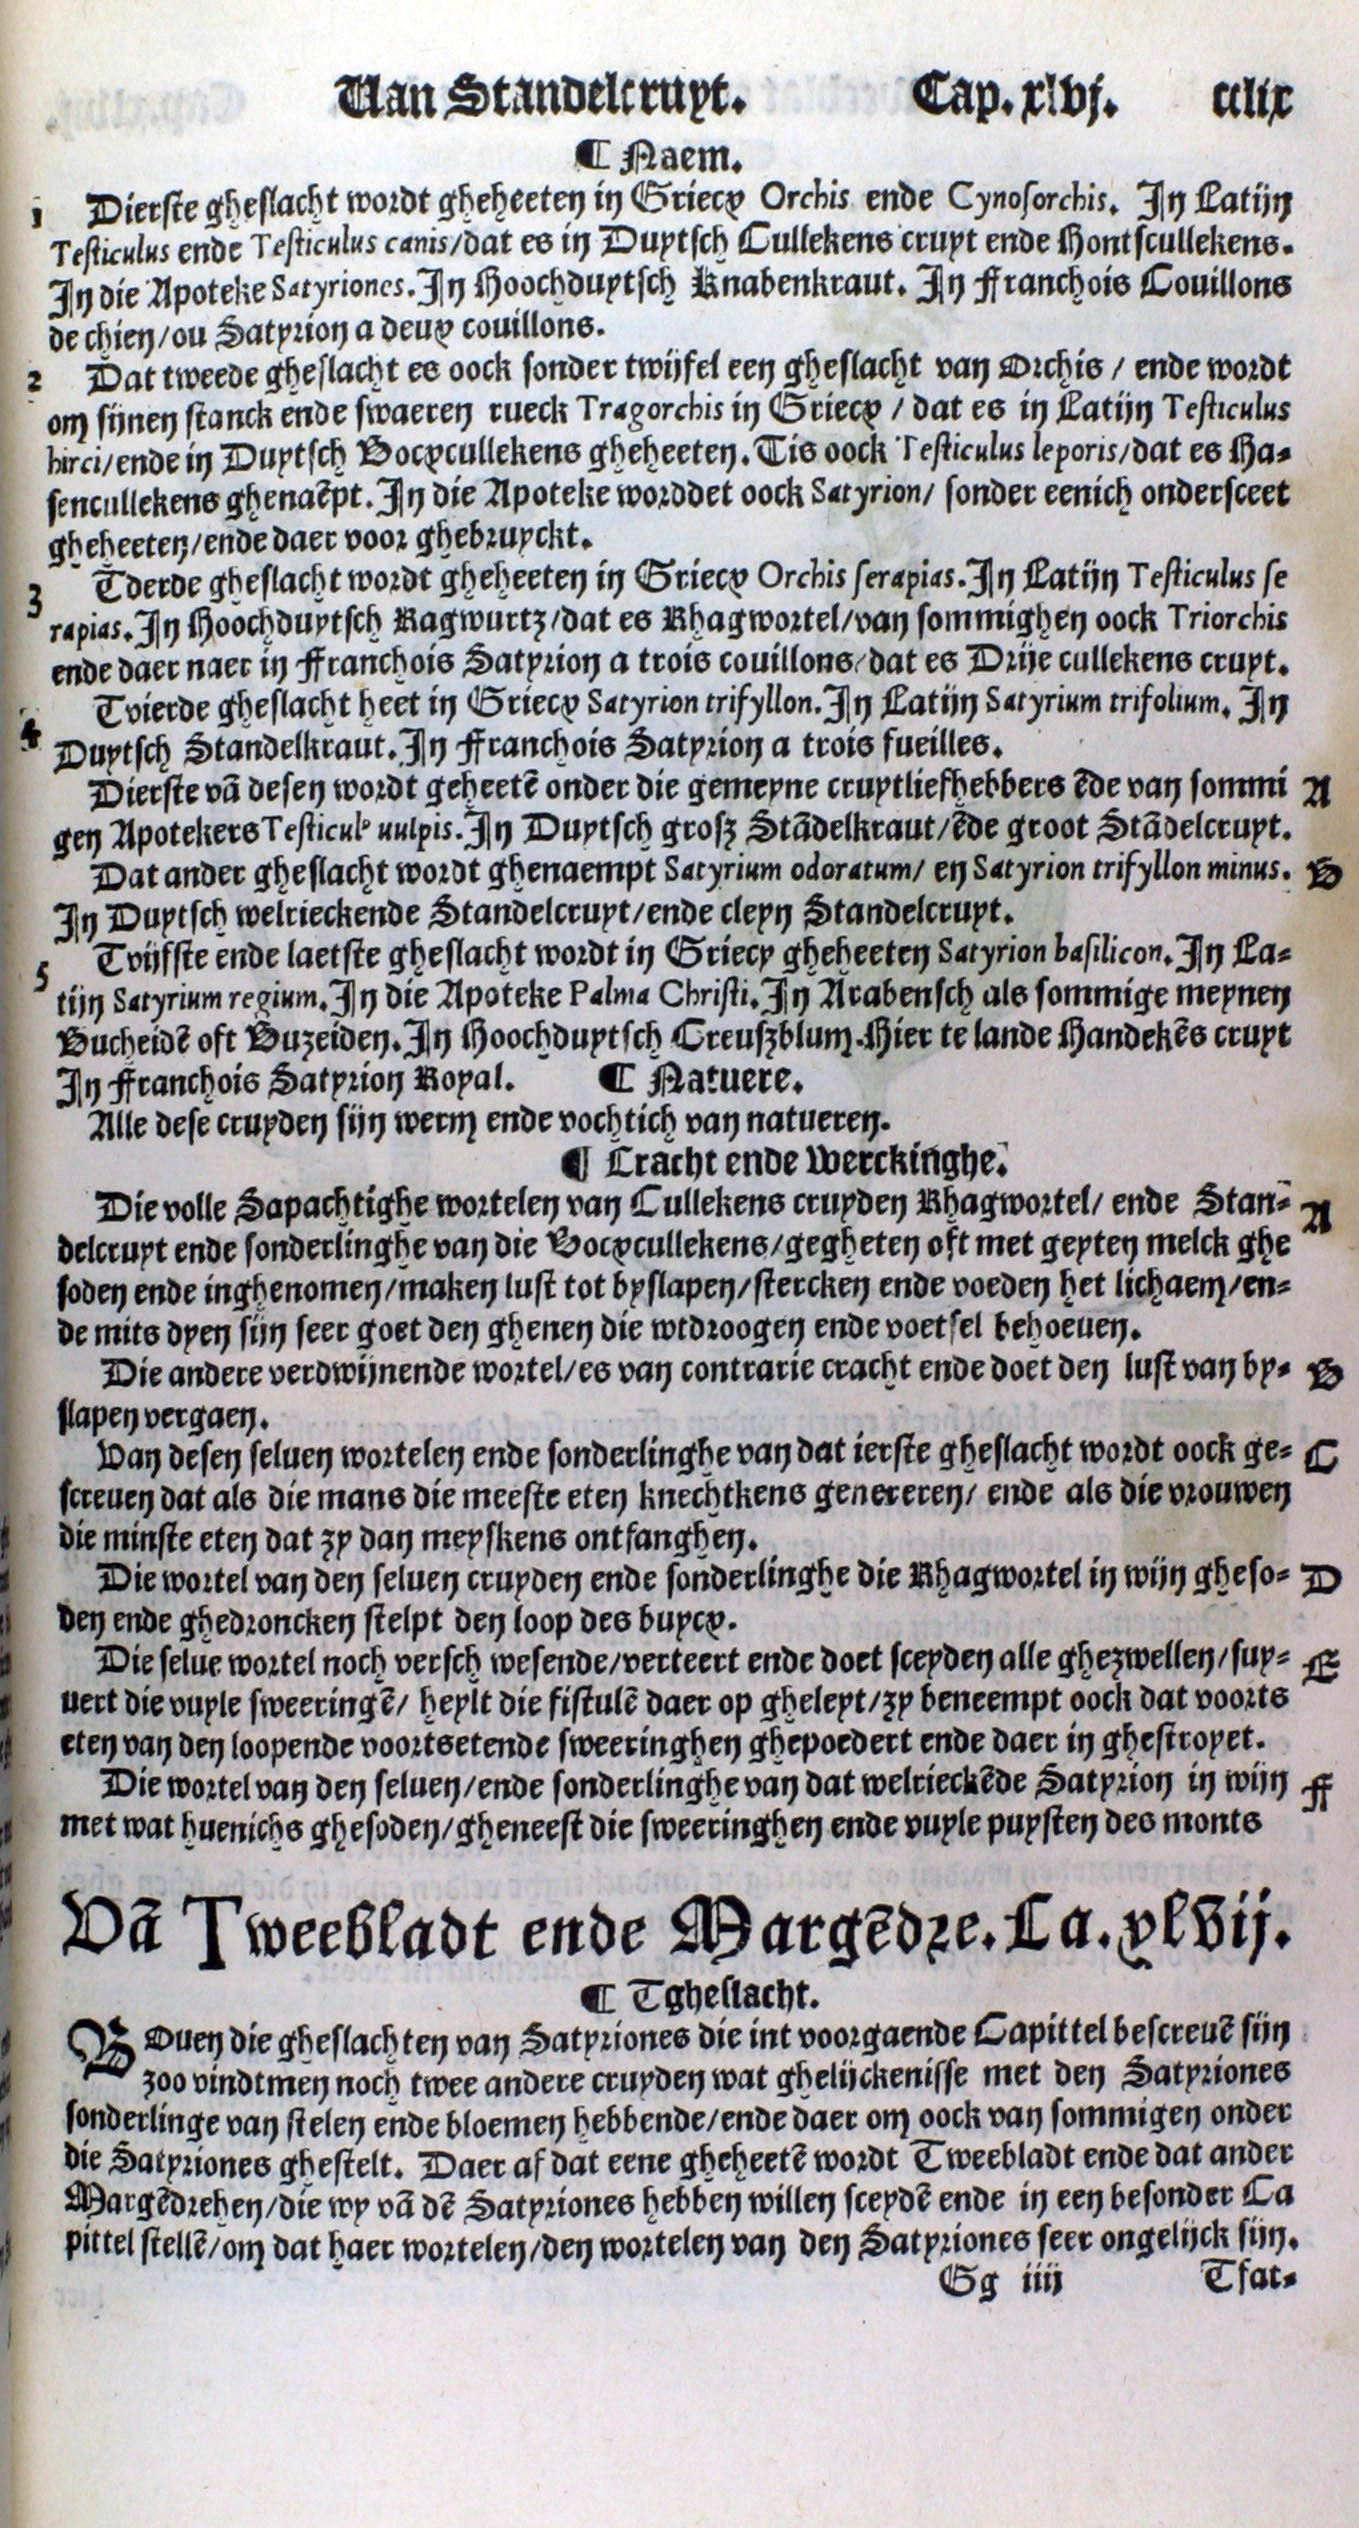 Van Standelcruyt. Cap. xlvj. cclix
¶ Naem.
1 Dierste gheslacht wordt gheheeten in Griecx Orchis ende Cynosorchis. In Latijn
Testiculus ende Testiculus canis/dat es in Duytsch Cullekens cruyt ende Hontscullekens.
In die Apoteke Satyriones. In Hoochduytsch Knabenkraut. In Franchois Couillons
de chien/ou Satyrion a deux couillons.
2 Dat tweede gheslacht es oock sonder twijfel een gheslacht van Orchis / ende wordt
om sijnen stanck ende swaeren rueck Tragorchis in Griecx / dat es in Latijn Testiculus
hirci/ende in Duytsch Bocxcullekens gheheeten. Tis oock Testiculus leporis/dat es Ha-
sencullekens ghenaēpt. In die Apoteke worddet oock Satyrion/ sonder eenich ondersceet
gheheeten/ende daer voor ghebruyckt.
3 Tderde gheslacht wordt gheheeten in Griecx Orchis serapias. In Latijn Testiculus se
rapias. In Hoochduytsch Ragwurtz/dat es Rhagwortel/van sommighen oock Triorchis
ende daer naer in Franchois Satyrion a trois couillons/dat es Drije cullekens cruyt.
4 Tvierde gheslacht heet in Griecx Satyrion trifyllon. In Latijn Satyrium trifolium. In
Duytsch Standelkraut. In Franchois Satyrion a trois fueilles.
Dierste vā desen wordt geheetē onder die gemeyne cruytliefhebbers ēde van sommi A
gen Apotekers Testicul⁹ uulpis. In Duytsch grosz Stādelkraut/ēde groot Stādelcruyt.
Dat ander gheslacht wordt ghenaempt Satyrium odoratum/ en Satyrion trifyllon minus. B
In Duytsch welrieckende Standelcruyt/ende cleyn Standelcruyt.
5 Tvijfste ende laetste gheslacht wordt in Griecx gheheeten Satyrion basilicon. In La-
tijn Satyrium regium. In die Apoteke Palma Christi. In Arabensch als sommige meynen
Bucheidē oft Buzeiden. In Hoochduytsch Creuszblum. Hier te lande Handekēs cruyt
In Franchois Satyrion Royal. ¶ Natuere.
Alle dese cruyden sijn werm ende vochtich van natueren.
¶ Cracht ende Werckinghe.
Die volle Sapachtighe wortelen van Cullekens cruyden Rhagwortel/ ende Stan- A
delcruyt ende sonderlinghe van die Bocxcullekens/gegheten oft met geyten melck ghe
soden ende inghenomen/maken lust tot byslapen/stercken ende voeden het lichaem/en-
de mits dyen sijn seer goet den ghenen die wtdroogen ende voetsel behoeuen.
Die andere verdwijnende wortel/es van contrarie cracht ende doet den lust van by- B
slapen vergaen.
Van desen seluen wortelen ende sonderlinghe van dat ierste gheslacht wordt oock ge- C
screuen dat als die mans die meeste eten knechtkens genereren/ ende als die vrouwen
die minste eten dat zy dan meyskens ontfanghen.
Die wortel van den seluen cruyden ende sonderlinghe die Rhagwortel in wijn gheso- D
den ende ghedroncken stelpt den loop des buycx.
Die selue wortel noch versch wesende/verteert ende doet sceyden alle ghezwellen/suy- E
uert die vuyle sweeringē/ heylt die fistulē daer op gheleyt/zy beneempt oock dat voorts
eten van den loopende voortsetende sweeringhen ghepoedert ende daer in ghestroyet.
Die wortel van den seluen/ende sonderlinghe van dat welrieckēde Satyrion in wijn F
met wat huenichs ghesoden/gheneest die sweeringhen ende vuyle puysten des monts
Vā Tweebladt ende Margēdre. Ca. xlvij.
¶ Tgheslacht.
BOuen die gheslachten van Satyriones die int voorgaende Capittel bescreuē sijn
zoo vindtmen noch twee andere cruyden wat ghelijckenisse met den Satyriones
sonderlinge van stelen ende bloemen hebbende/ende daer om oock van sommigen onder
die Satyriones ghestelt. Daer af dat eene gheheetē wordt Tweebladt ende dat ander
Margēdrehen/die wy vā dē Satyriones hebben willen sceydē ende in een besonder Ca
pittel stellē/om dat haer wortelen/den wortelen van den Satyriones seer ongelijck sijn.
Gg iiij Tfat-